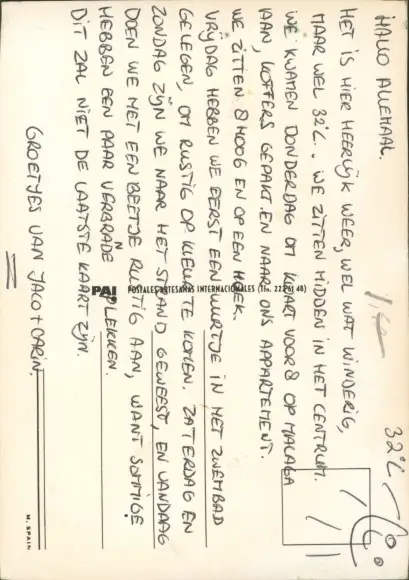 HALLO ALLEMAAL,
32°C
HET IS HIER HEERLIJK WEER, WEL WAT WINDERIG,
MAAR WEL 32°C. WE ZITTEN MIDDEN IN HET CENTRUM.
WE KWAMEN DONDERDAG OM KWART VOOR 8 OP MALAGA
AAN, KOFFERS GEPAKT EN NAAR ONS APPARTEMENT.
WE ZITTEN 8 HOOG EN OP EEN HOEK.
VRIJDAG HEBBEN WE EERST EEN UURTJE IN HET ZWEMBAD
GELEGEN, OM RUSTIG OP KLEUR TE KOMEN. ZATERDAG EN
ZONDAG ZIJN WE NAAR HET STRAND GEWEEST, EN VANDAAG
DOEN WE HET EEN BEETJE RUSTIG AAN, WANT SOMMIGE
HEBBEN EEN PAAR VERBRANDE PLEKKEN.
DIT ZAL NIET DE LAATSTE KAART ZIJN.
GROETJES VAN JACO + CARIN.
POSTALES ARTESANAS INTERNACIONALES